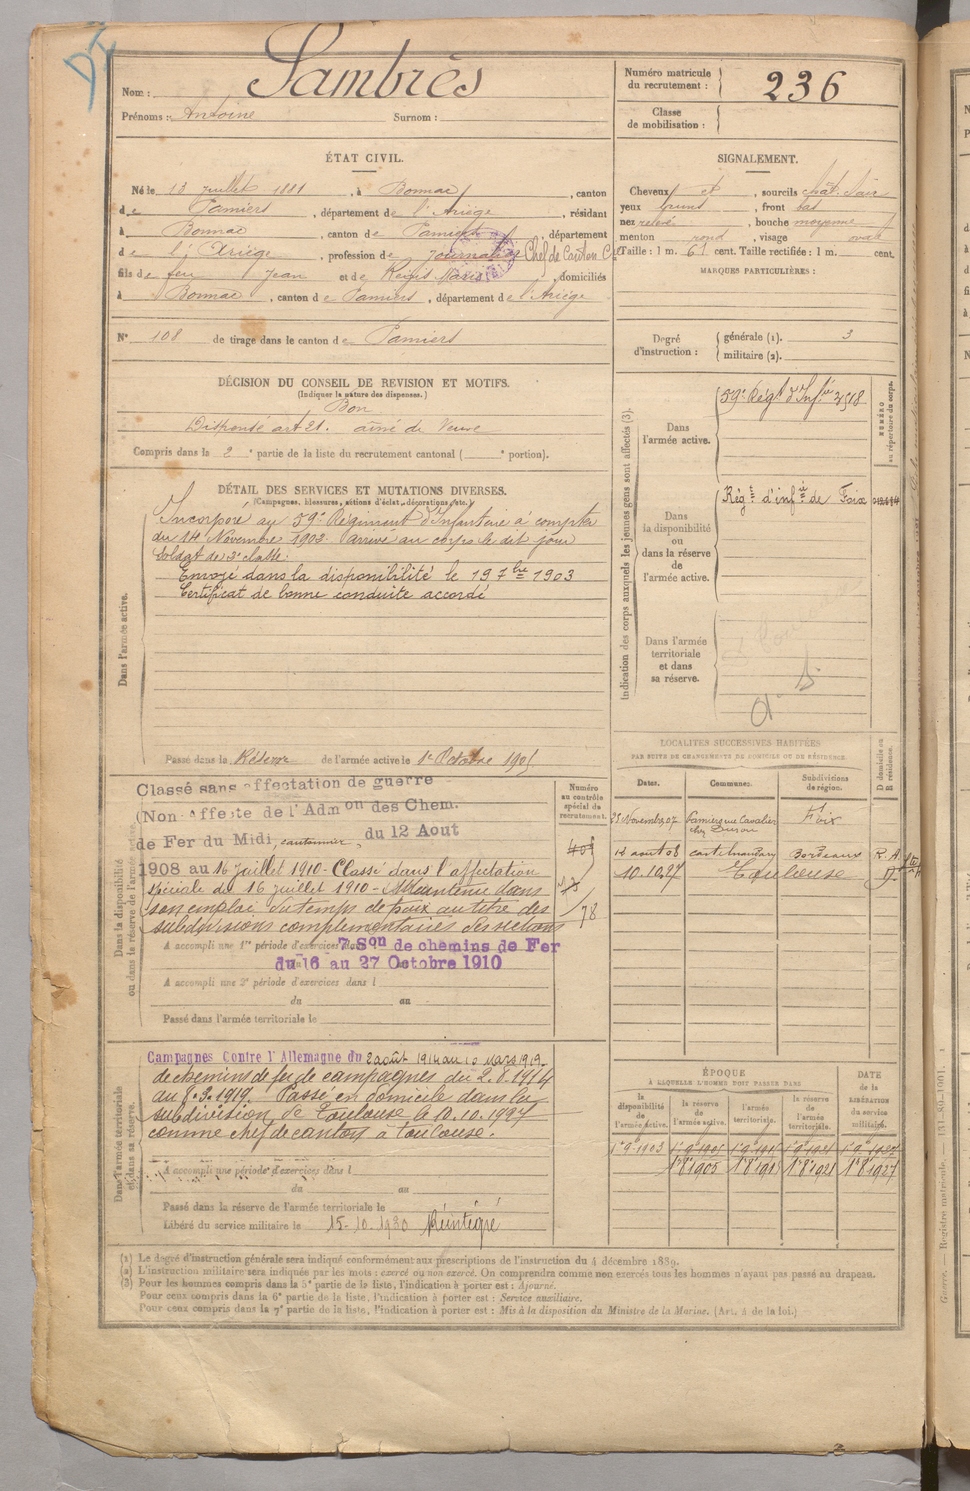 Nom : Sambrès
Prénoms : Antoine Surnom :
Numéro matricule du recrutement : 236
Classe de mobilisation :
ÉTAT CIVIL.
Né le 13 Juillet 1881, à Bonnac, canton
de Pamiers, département de l'Ariège, résidant
à Bonnac, canton de Pamiers, département
de l'Ariège, profession de Journalier Chef de Canton
fils de feu Jean et de Régis Marie, domiciliés
à Bonnac, canton de Pamiers, département de l'Ariège
N° 108 de tirage dans le canton de Pamiers
SIGNALEMENT.
Cheveux et, sourcils chât. noir
yeux bruns, front bas
nez relevé, bouche moyenne
menton rond, visage ovale
Taille : 1 m. 61 cent. Taille rectifiée : 1 m. cent.
MARQUES PARTICULIÈRES :
Degré d'instruction : générale (1). 3
militaire (2).
DÉCISION DU CONSEIL DE REVISION ET MOTIFS.
(Indiquer la nature des dispenses.)
Bon
Dispensé art 21. aîné de Veuve
Compris dans la 2e partie de la liste du recrutement cantonal ( e portion).
DÉTAIL DES SERVICES ET MUTATIONS DIVERSES.
(Campagnes, blessures, actions d'éclat, décorations, etc.)
Dans l'armée active.
Incorporé au 59e Régiment d'Infanterie à compter
du 14 Novembre 1902. arrivé au corps le dit jour
Soldat de 2e classe.
Envoyé dans la disponibilité le 19 7bre 1903
Certificat de bonne conduite accordé
Passé dans la Réserve de l'armée active le 1er Octobre 1905
Indication des corps auxquels les jeunes gens sont affectés (3).
NUMÉRO au répertoire du corps.
Dans l'armée active.
59e Régt d'Infie
Dans la disponibilité ou dans la réserve de l'armée active.
Régt d'infie de Foix
Dans l'armée territoriale et dans sa réserve.
LOCALITÉS SUCCESSIVES HABITÉES
PAR SUITE DE CHANGEMENTS DE DOMICILE OU DE RÉSIDENCE.
Dates. Communes. Subdivisions de région. D domicile ou R résidence.
25 Novemb. 07 Pamiers rue Cavalier Foix
12 aout 08 Castelnaudary Bordeaux R. A
10.10.27 Toulouse D.
Dans la disponibilité ou dans la réserve de l'armée active.
Numéro au contrôle spécial du recrutement.
Classé sans affectation de guerre
(Non-Affecté de l'Admon des Chem.
de Fer du Midi, cantonnier, du 12 Aout
1908 au 16 juillet 1910 - Classé dans l'affectation
spéciale du 16 juillet 1910 - Maintenu dans
son emploi du temps de paix au titre des
subdivisions complémentaires des sections
A accompli une 1re période d'exercices dans 7e Son de chemins de Fer
du 16 au 27 Octobre 1910
A accompli une 2e période d'exercices dans l
du au
Passé dans l'armée territoriale le
78
Dans l'armée territoriale et dans sa réserve.
Campagnes Contre l'Allemagne du 2 août 1914 au 10 Mars 1919.
de chemins de fer de campagnes du 2.8.1914
au 8.3.1919. Passé en domicile dans la
subdivision de Toulouse le 10.10.1927
comme chef de canton à Toulouse.
A accompli une période d'exercices dans l
du au
Passé dans la réserve de l'armée territoriale le
Libéré du service militaire le 15-10-1930 Réintégré
ÉPOQUE
À LAQUELLE L'HOMME DOIT PASSER DANS
DATE de la LIBÉRATION du service militaire.
la disponibilité de l'armée active. la réserve de l'armée active. l'armée territoriale. la réserve de l'armée territoriale.
1er 9 1903 1er 9 1905
1er 8 1905 1er 8 1921 1er 8 1927
(1) Le degré d'instruction générale sera indiqué conformément aux prescriptions de l'instruction du 4 décembre 1889.
(2) L'instruction militaire sera indiquée par les mots : exercé ou non exercé. On comprendra comme non exercés tous les hommes n'ayant pas passé au drapeau.
(3) Pour les hommes compris dans la 5e partie de la liste, l'indication à porter est : Ajourné.
Pour ceux compris dans la 6e partie de la liste, l'indication à porter est : Service auxiliaire.
Pour ceux compris dans la 7e partie de la liste, l'indication à porter est : Mis à la disposition du Ministre de la Marine. (Art. 4 de la loi.)